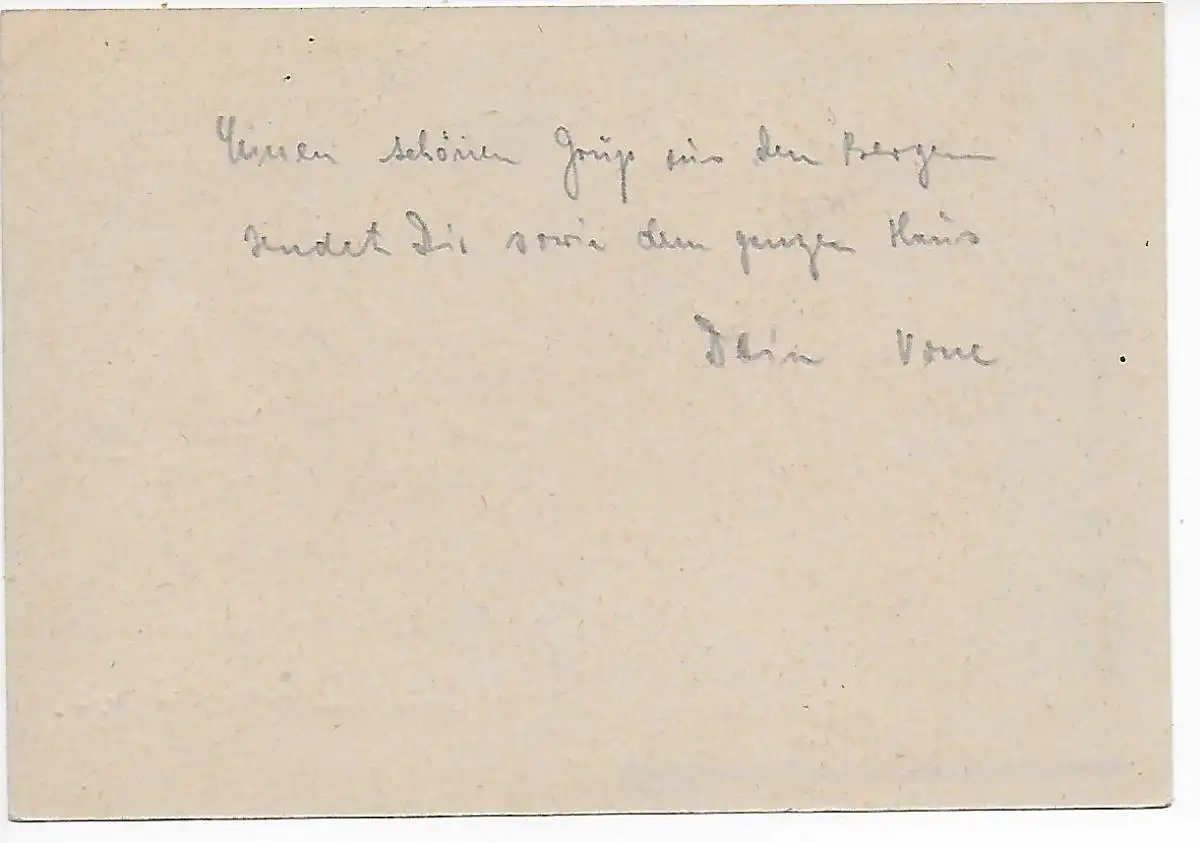 Einen schönen Gruß aus den Bergen
sendet Dir sowie dem ganzen Haus
Dein